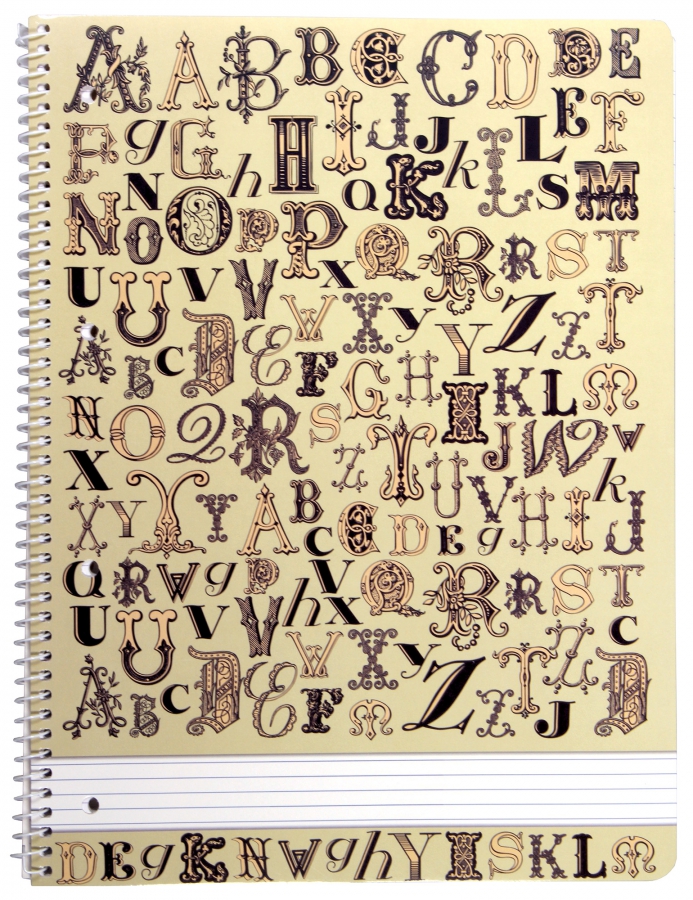 A A B B C C D D E
E G G H I J J K L E F
N Q K S M
N O O P P Q R R S T
U U V V X
W Y Y Z Z T
A B C D E F G H I K L M
N O Q R S Z T J W W
X U V k
X Y Y T A B C C D E g H I J
Q R W g P h V X Q R R S T
U U V V C
W X Y Z Z
A B C D E F M Z T J D
D E g K N W g h Y I S K L M